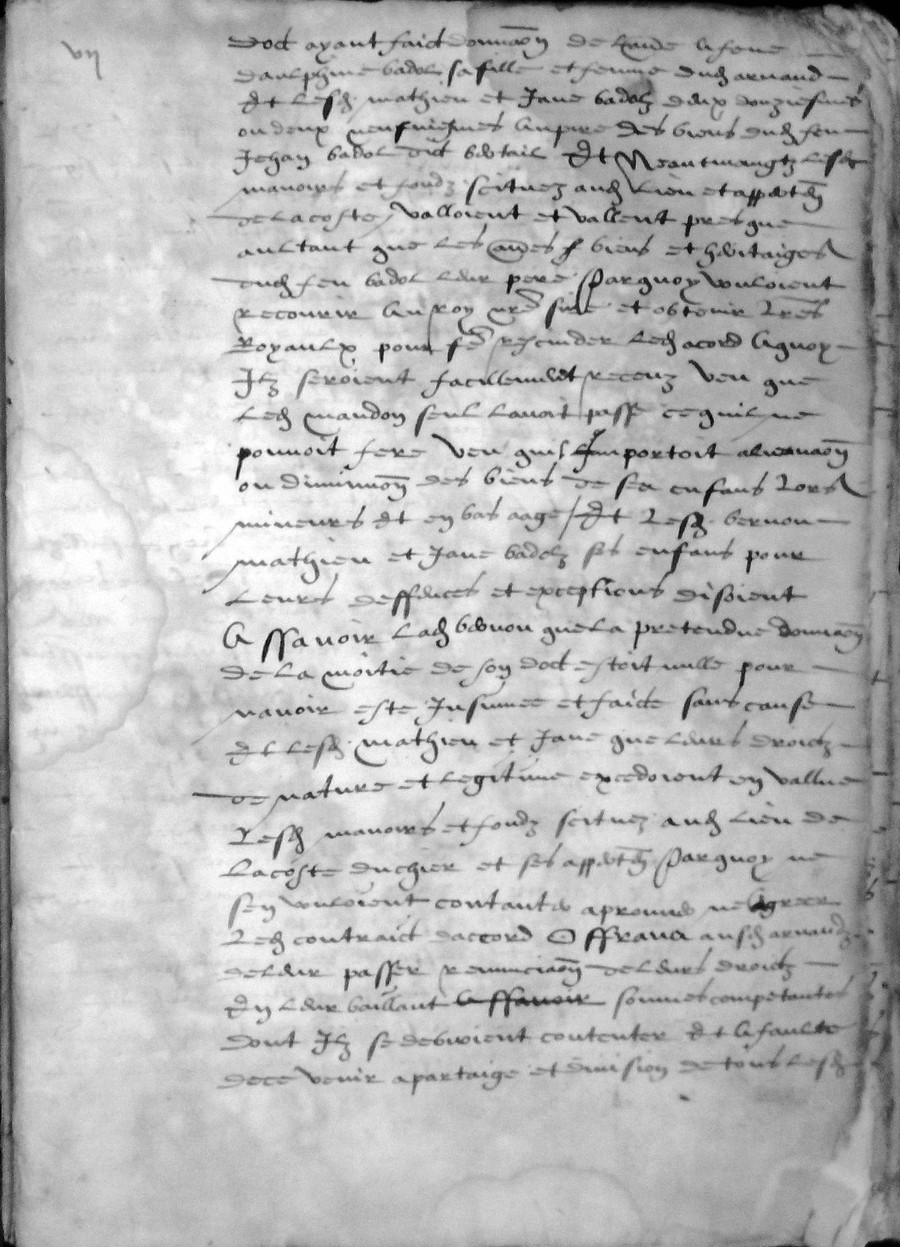 vii
dot ayant faict donnaon de lautre a feue
daulphine badol sa fille et femme dud arnaud
Et lesd mathieu et Jane badolz deux douziesmes
ou deux neufviesmes au pre des biens dud feu
Jehan badol dit bertail Et Neantmoingtz lesd
manoirs et fondz scituez aud lieu et appertem
de lacoste valloient et vallent presque
aultant que les autres biens et heritaiges
dud feu badol leur pere Parquoy vouloient
recourir au roy nre sire et obtenir lres
Royaulx pour fe rescinder led acord aquoy
Ilz seroient facillement receuz veu que
led mandon seul lavoit passe ce quil ne
pouvoit fere veu quil Importoit alienaon
ou diminuon des biens de ses enfans lors
mineurs et en bas aage / Et lesd bernon
mathieu et Jane badolz ses enfans pour
leurs deffences et exceptions disoient
Assavoir lad bernon que la pretendue donnaon
de la moitie de son dot estoit nulle pour
navoir este Insinuee et faicte sans cause
Et lesd mathieu et Jane que leurs droictz
de nature et legitime excedoient en vallue
lesd manoirs et fondz scituez aud lieu de
lacoste duchier et ses appertem Parquoy ne
sen vouloient contanter aprouver ne Agreer
led contraict daccord Offrans ausd arnaudz
de leur passer renunciaon de leurs droictz
En leur baillant assavoir sommes competantes
dont Ilz se debvoient contenter Et a faulte
de ce venir a partaige et division de tous lesd